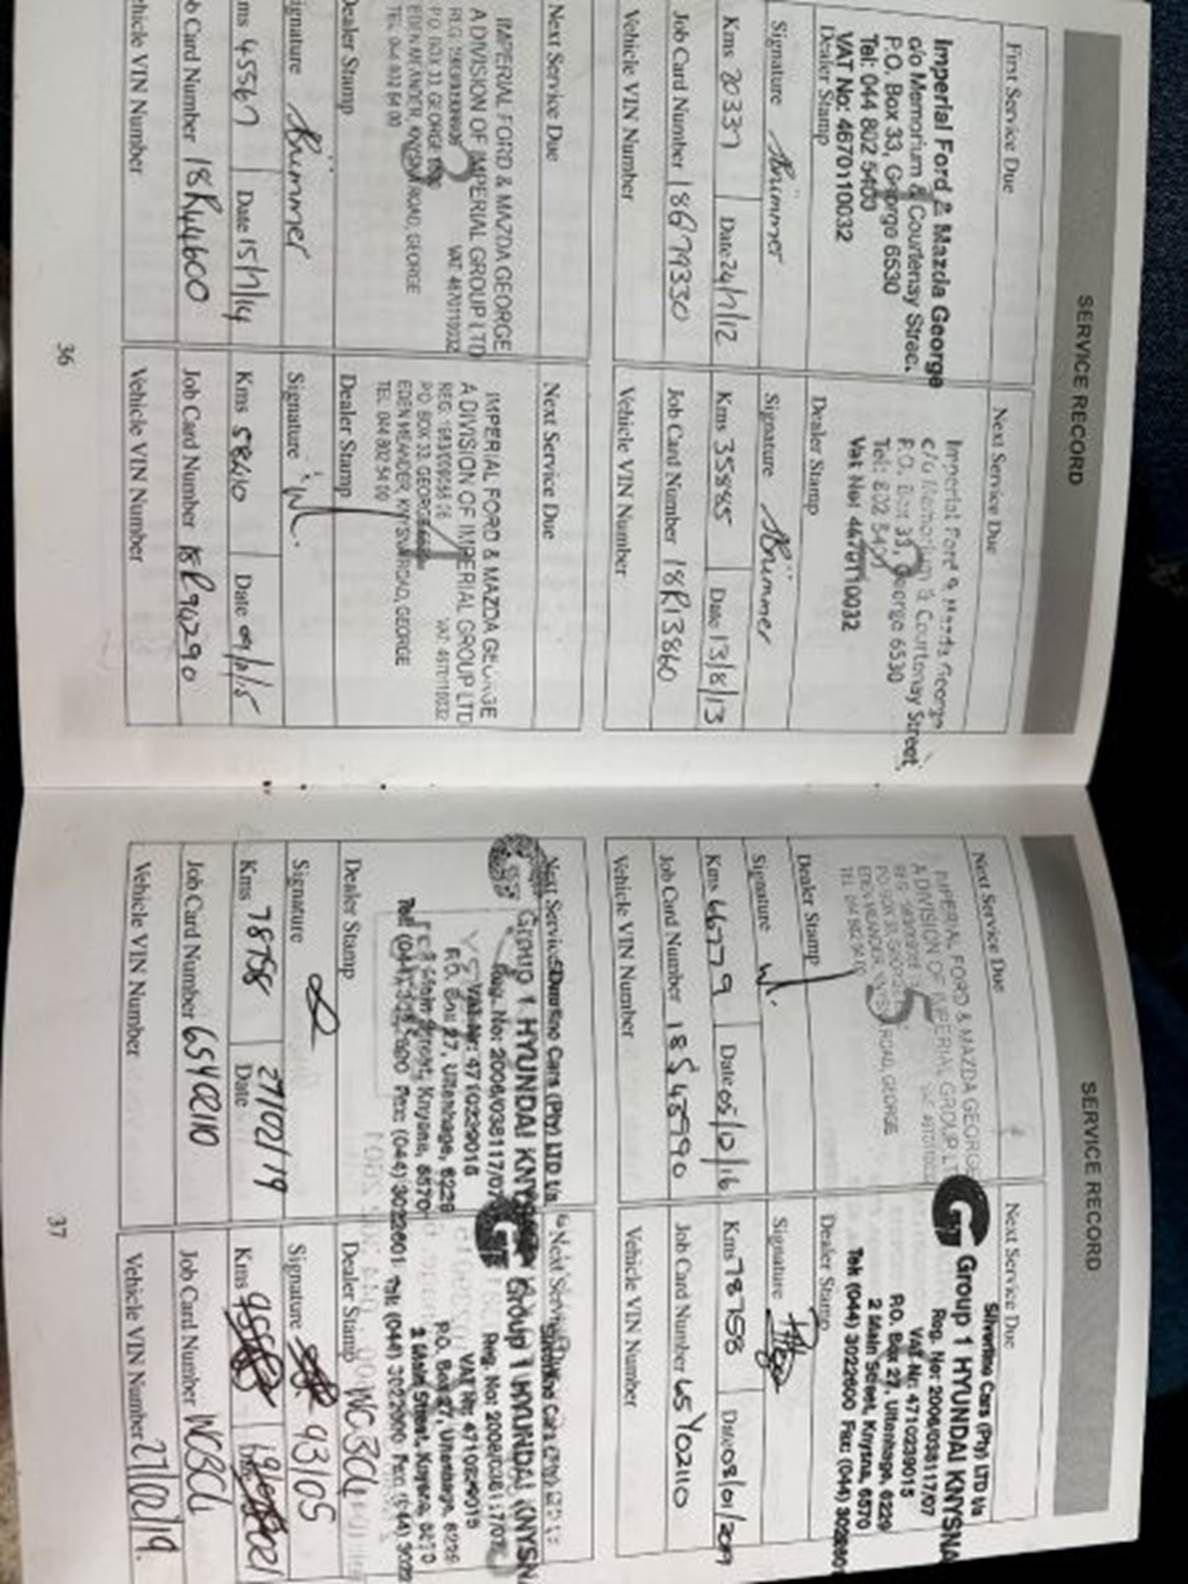 SERVICE RECORD
First Service Due
Imperial Ford & Mazda George
c/o Memorium & Courtenay Street.
P.O. Box 33, George 6530
Tel: 044 802 5400
VAT No: 4670110032
Dealer Stamp
Signature Brümmer
Kms 20337 Date 24/7/12
Job Card Number 18Q79330
Vehicle VIN Number
Next Service Due
Imperial Ford & Mazda George
c/o Memorium & Courtenay Street.
P.O. Box 33, George 6530
Tel: 802 5400
Vat No: 4670110032
Dealer Stamp
Signature Brümmer
Kms 35885 Date 13/8/13
Job Card Number 18R13860
Vehicle VIN Number
Next Service Due
IMPERIAL FORD & MAZDA GEORGE
A DIVISION OF IMPERIAL GROUP LTD
VAT: 4670110032
P.O. BOX 33 GEORGE
EDEN MEANDER, KNYSNA ROAD, GEORGE
TEL: 044 802 54 00
3
Dealer Stamp
Signature Brümmer
Kms 45567 Date 15/7/14
Job Card Number 18R44600
Vehicle VIN Number
Next Service Due
IMPERIAL FORD & MAZDA GEORGE
A DIVISION OF IMPERIAL GROUP LTD
VAT: 4670110032
PO BOX 33, GEORGE
EDEN MEANDER, KNYSNA ROAD, GEORGE
TEL: 044 802 54 00
4
Dealer Stamp
Signature
Kms 58410 Date
Job Card Number 18R94290
Vehicle VIN Number
36
SERVICE RECORD
Next Service Due
IMPERIAL FORD & MAZDA GEORGE
A DIVISION OF IMPERIAL GROUP LTD
ROAD, GEORGE
5
Dealer Stamp
Signature
Kms 66779 Date 05/12/16
Job Card Number 18S43990
Vehicle VIN Number
Next Service Due
Silverline Cars (Pty) LTD t/a
Group 1 HYUNDAI KNYSNA
Reg. No: 2006/038117/07
VAT Nr: 4710239015
P.O. Box 27, Uitenhage, 6229
2 Main Street, Knysna, 6570
Tel: (044) 3022600 Fax: (044) 3022601
Dealer Stamp
Signature
Kms 78758 Date 08/01/2019
Job Card Number 65Y02110
Vehicle VIN Number
Next Service Due
Silverline Cars (Pty) LTD t/a
Group 1 HYUNDAI KNYSNA
Reg. No: 2006/038117/07
VAT Nr: 4710239015
P.O. Box 27, Uitenhage, 6229
Main Street, Knysna, 6570
Tel: (044) 3022600 Fax: (044) 3022601
Dealer Stamp
Signature
Kms 78758 Date 27/02/19
Job Card Number 65Y02110
Vehicle VIN Number
Next Service Due
Group 1 HYUNDAI KNYSNA
P.O. Box 27, Uitenhage, 6229
2 Main Street, Knysna
Tel: (044) 3022600 Fax: (044) 3022
Dealer Stamp
Signature 93105
Kms
Job Card Number
Vehicle VIN Number 27/02/19.
37